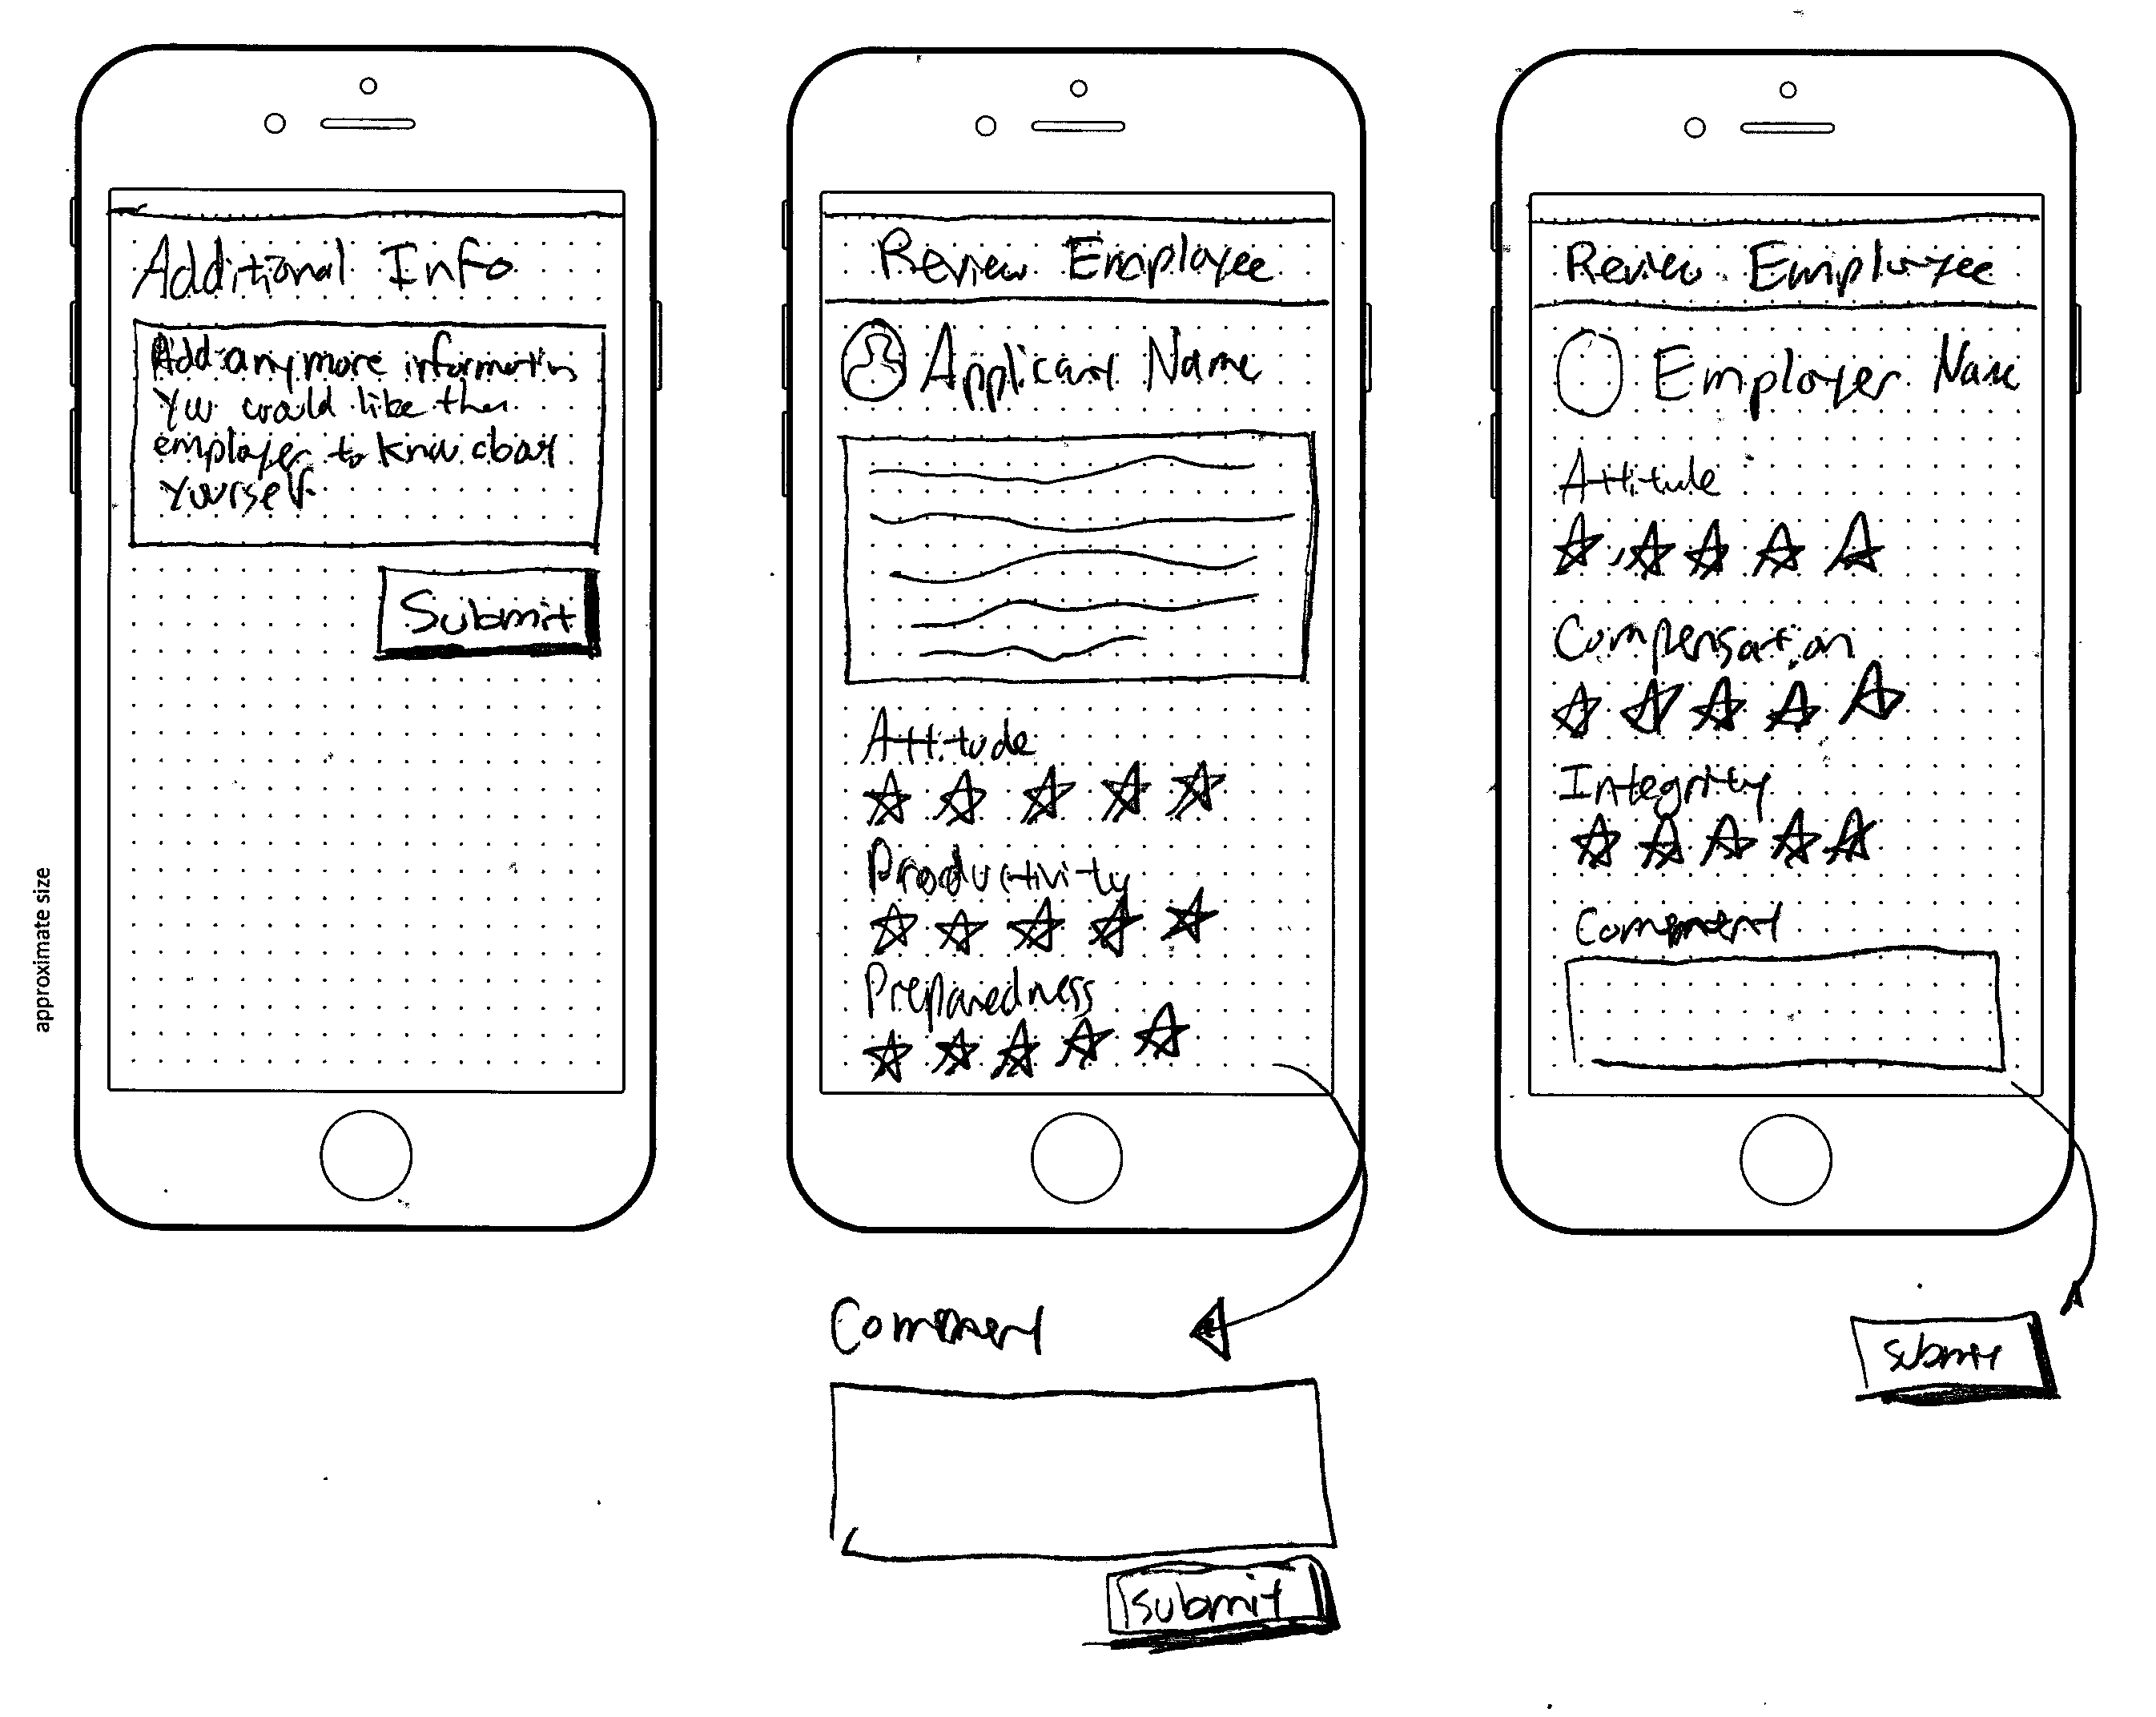 approximate size
Additional Info
Add any more information
you would like the
employer to know about
yourself
Submit
Review Employee
Applicant Name
Attitude
Productivity
Preparedness
Comment
submit
Review Employee
Employer Name
Attitude
Compensation
Integrity
Comment
submit